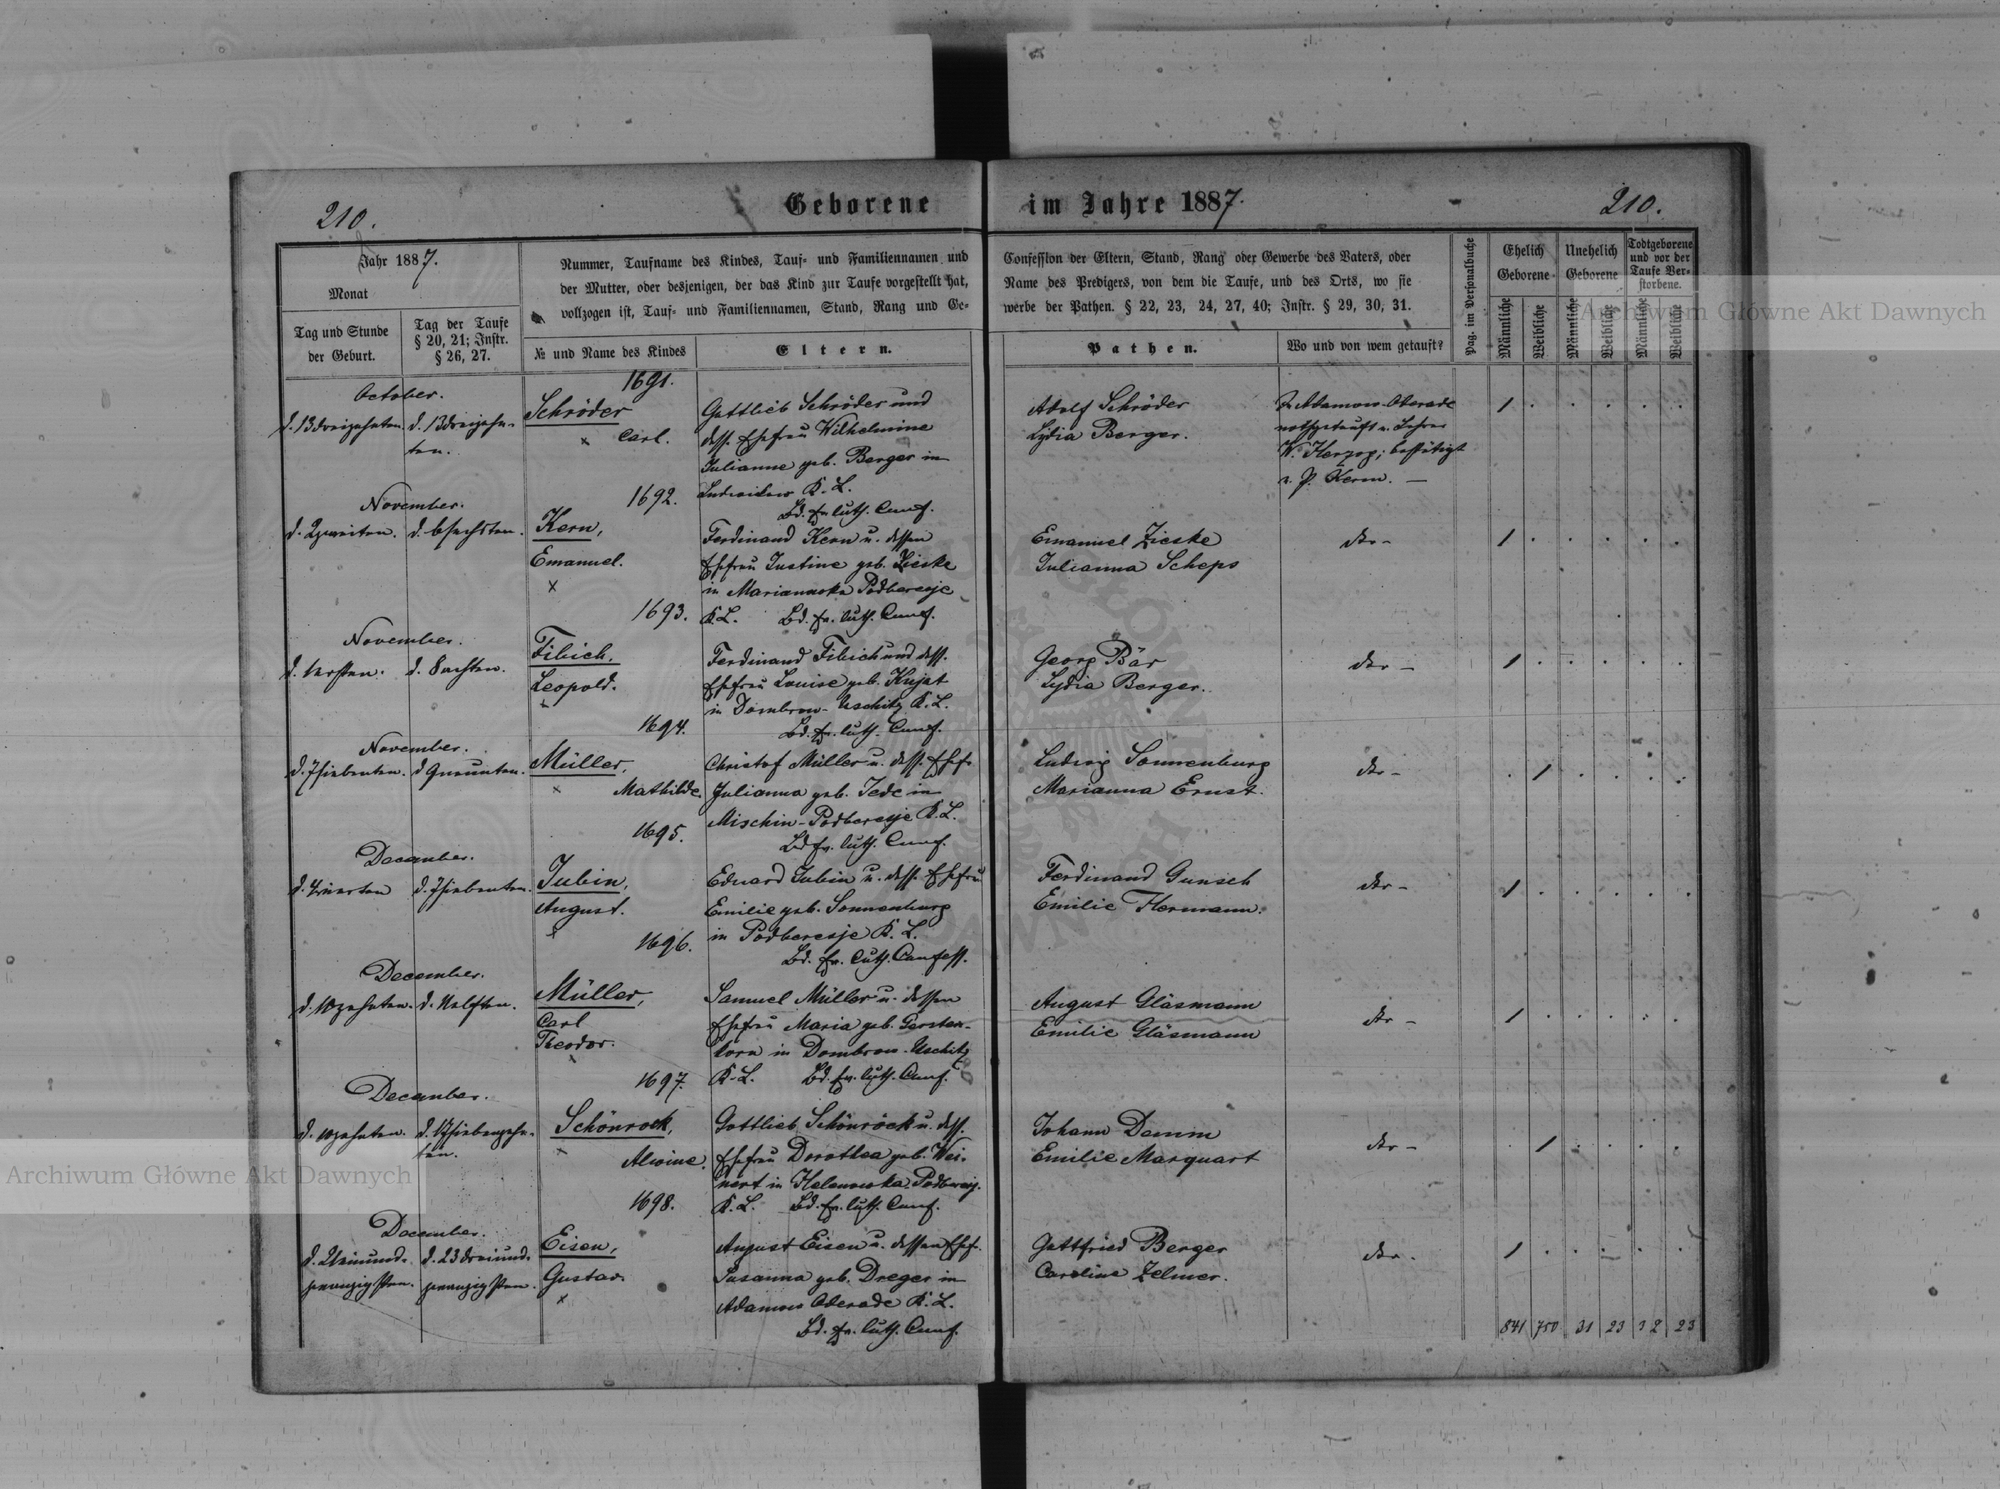 210.
Geborene im Jahre 1887.
210.
Jahr 1887.
Monat
Tag und Stunde
der Geburt.
Tag der Taufe
§ 20, 21; Instr.
§ 26, 27.
Nummer, Taufname des Kindes, Tauf- und Familiennamen und
der Mutter, oder desjenigen, der das Kind zur Taufe vorgestellt hat,
vollzogen ist, Tauf- und Familiennamen, Stand, Rang und Ge-
№ und Name des Kindes
Eltern.
Confession der Eltern, Stand, Rang oder Gewerbe des Vaters, oder
Name des Predigers, von dem die Taufe, und des Orts, wo sie
werbe der Pathen. § 22, 23, 24, 27, 40; Instr. § 29, 30, 31.
Pathen.
Wo und von wem getauft?
Pag. im Personalbuche
Ehelich
Geborene
Unehelich
Geborene
Todtgeborene
und vor der
Taufe Ver-
storbene.
Männliche
Weibliche
Männliche
Weibliche
Männliche
Weibliche
1691.
October.
d. 13 dreizehnten. d. 13 dreizehn-
ten.
Schröder
Carl.
Gottlieb Schröder und
dess. Ehefrau Wilhelmine
Julianne geb. Berger in
K. L.
Bd. ev. luth. Conf.
Adolf Schröder
Lydia Berger.
In Adamow-Oberade
nothgetauft v. Lehrer
W. Herzog; bestätigt
v. P. Kerm. —
1692.
November.
d. 2 zweiten. d. 6 sechsten.
Kern,
Emanuel.
Ferdinand Kern u. dessen
Ehefrau Justine geb. Zieske
in Marianowka Podberesje
K. L. Bd. ev. luth. Conf.
Emanuel Zieske
Julianna Scheps
1693.
November.
d. 1 ersten. d. 8 achten.
Fibich.
Leopold.
Ferdinand Fibich und dess.
Ehefrau Louise geb. Kujat
in Dombrow-Uschitz K. L.
Bd. ev. luth. Conf.
Georg Bär
Lydia Berger.
1694.
November.
d. 7 siebenten. d. 9 neunten.
Müller,
Mathilde.
Christof Müller u. dess. Ehef.
Julianna geb. Jede in
Mischin-Podberesje K. L.
Bd. ev. luth. Conf.
Ludwig Sonnenburg
Marianna Ernst.
1695.
December.
d. 4 vierten d. 7 siebenten.
Jubin,
August.
Eduard Jubin u. dess. Ehefrau
Emilie geb. Sonnenburg
in Podberesje K. L.
Bd. ev. luth. Confess.
Ferdinand Gunsch
Emilie Hermann.
1696.
December.
d. 10 zehnten. d. 11 elften.
Müller,
Carl
Theodor.
Samuel Müller u. dessen
Ehefrau Maria geb. Gersten-
korn in Dombrow-Uschitz
K. L. Bd. ev. luth. Conf.
August Gläsmann
Emilie Gläsmann
1697.
December.
d. 10 zehnten. d. 17 siebenzehn-
ten.
Schönrock,
Alwine.
Gottlieb Schönrock u. dess.
Ehefrau Dorothea geb. Wei-
nert in Helenowka Podberesj.
K. L. Bd. ev. luth. Conf.
Johann Damm
Emilie Marquart
1698.
December.
d. 21 einund- d. 23 dreiund-
zwanzigsten. zwanzigsten.
Eisen,
Gustav.
August Eisen u. dessen Ehef.
Susanna geb. Dreger in
Adamow Oberade K. L.
Bd. ev. luth. Conf.
Gottfried Berger
Caroline Zelmer.
841 750 31 23 32 23
Archiwum Główne Akt Dawnych
Archiwum Główne Akt Dawnych